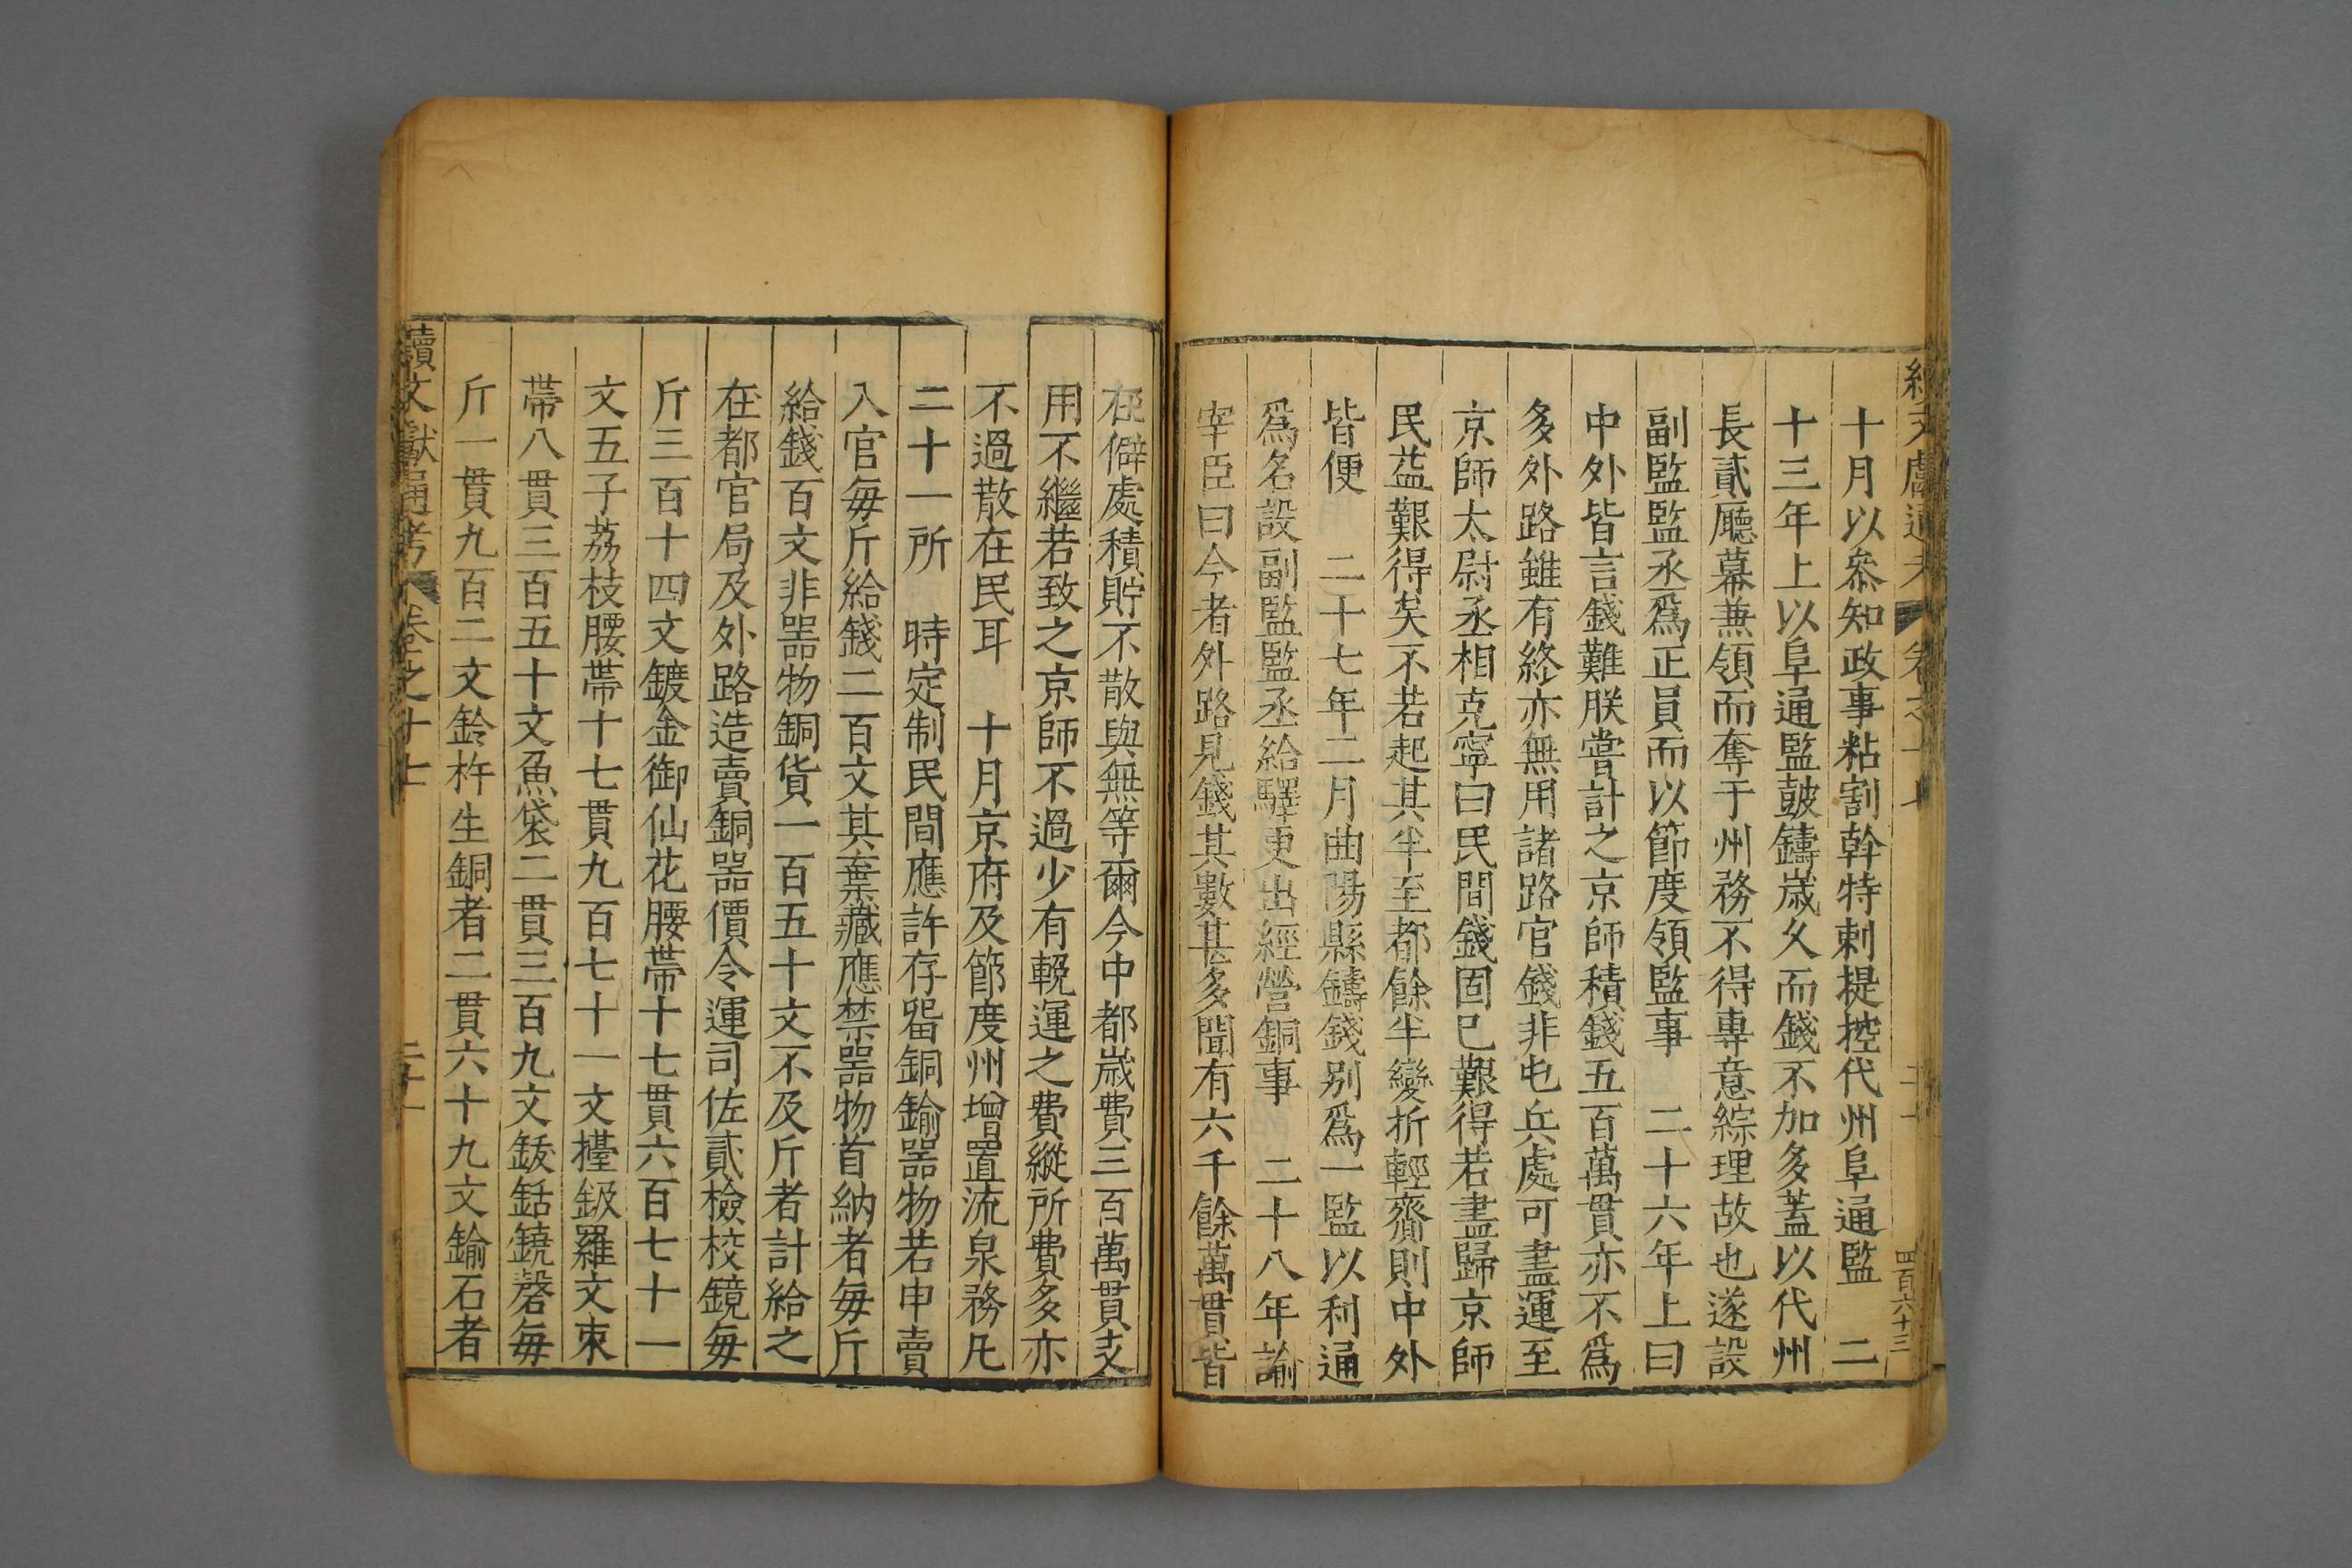 十月以叅知政事粘割斡特剌提控代州阜通監　二
十三年上以阜通監鼓鑄歲久而錢不加多蓋以代州
長貳廳幕兼領而奪于州務不得專意綜理故也遂設
副監監丞爲正員而以節度領監事　二十六年上曰
中外皆言錢難朕嘗計之京師積錢五百萬貫亦不爲
多外路雖有終亦無用諸路官錢非屯兵處可盡運至
京師太尉丞相克寧曰民間錢固已艱得若盡歸京師
民益艱得矣不若起其半至都餘半變折輕齎則中外
皆便　二十七年二月曲陽縣鑄錢别爲一監以利通
爲名設副監監丞給驛更出經營銅事　二十八年諭
宰臣曰今者外路見錢其數甚多聞有六千餘萬貫皆
在僻處積貯不散與無等爾今中都歲費三百萬貫支
用不繼若致之京師不過少有輓運之費縱所費多亦
不過散在民耳　十月京府及節度州增置流泉務凡
二十一所　時定制民間應許存留銅鍮噐物若申賣
入官毎斤給錢二百文其棄藏應禁噐物首納者毎斤
給錢百文非噐物銅貨一百五十文不及斤者計給之
在都官局及外路造賣銅噐價令運司佐貳檢校鏡毎
斤三百十四文鍍金御仙花腰帶十七貫六百七十一
文五子荔枝腰帶十七貫九百七十一文擡鈒羅文束
帶八貫三百五十文魚袋二貫三百九文鈸鈷鐃磬毎
斤一貫九百二文鈴杵生銅者二貫六十九文鍮石者
續文獻通考　卷之十七
四百六十三